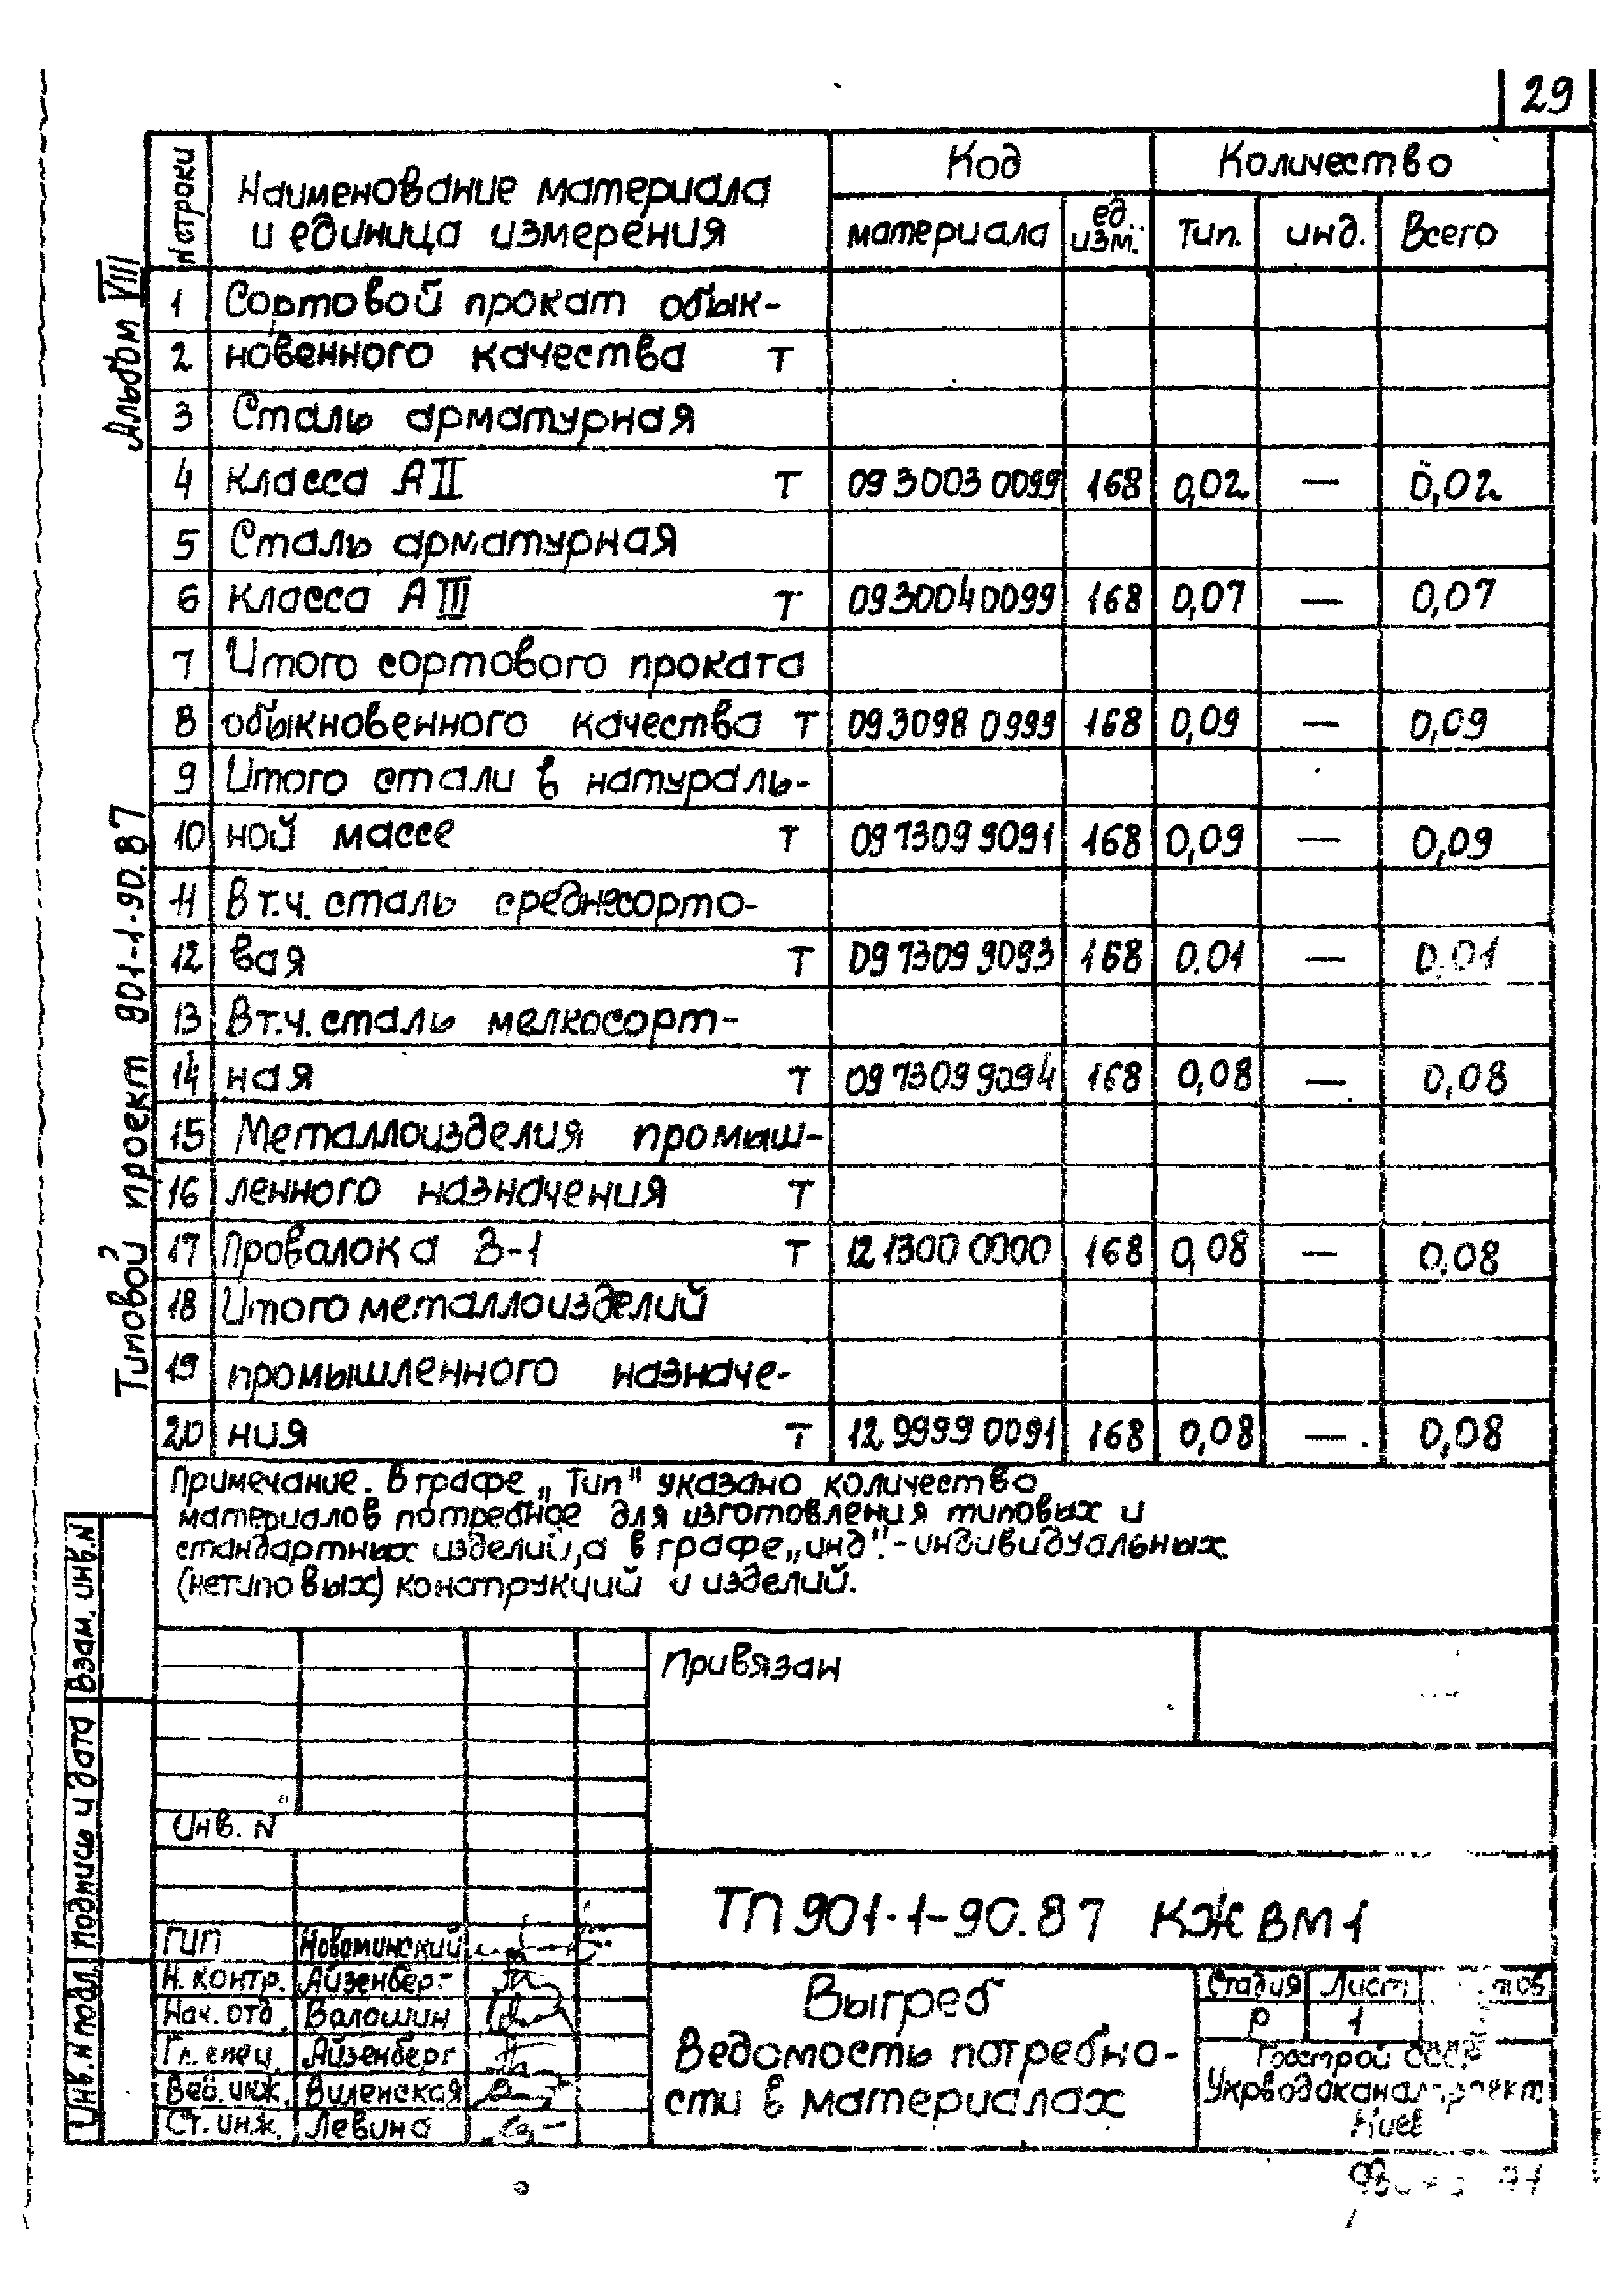 29
№ строки
Наименование материала
и единица измерения
Код
Количество
материала
ед. изм.
Тип.
инд.
Всего
1 Сортовой прокат обык-
2 новенного качества т
3 Сталь арматурная
4 класса АII т 0930030099 168 0,02 — 0,02
5 Сталь арматурная
6 класса АIII т 0930040099 168 0,07 — 0,07
7 Итого сортового проката
8 обыкновенного качества т 0930980999 168 0,09 — 0,09
9 Итого стали в натураль-
10 ной массе т 0973099091 168 0,09 — 0,09
11 В т.ч. сталь среднесорто-
12 вая т 0973099093 168 0.01 — 0.01
13 В т.ч. сталь мелкосорт-
14 ная т 0973099094 168 0,08 — 0,08
15 Металлоизделия промыш-
16 ленного назначения т
17 Провалока В-1 т 1213000000 168 0,08 — 0,08
18 Итого металлоизделий
19 промышленного назначе-
20 ния т 1299990091 168 0,08 — 0,08
Примечание. В графе „Тип" указано количество
материалов потребное для изготовления типовых и
стандартных изделий, а в графе „инд." - индивидуальных
(нетиповых) конструкций и изделий.
Альбом VIII
Типовой проект 901-1-90.87
Взам. инв. N
Подпись и дата
Инв. N подл
Привязан
Инв. N
ТП 901-1-90.87 КЖ ВМ1
ГИП Новоминский
Н. контр. Айзенберг
Нач. отд. Волошин
Гл. спец. Айзенберг
Вед. инж. Виленская
Ст. инж. Левина
Выгреб
Ведомость потребно-
сти в материалах
Стадия Лист
Р 1
Госстрой СССР
Укрводоканалпроект
Киев